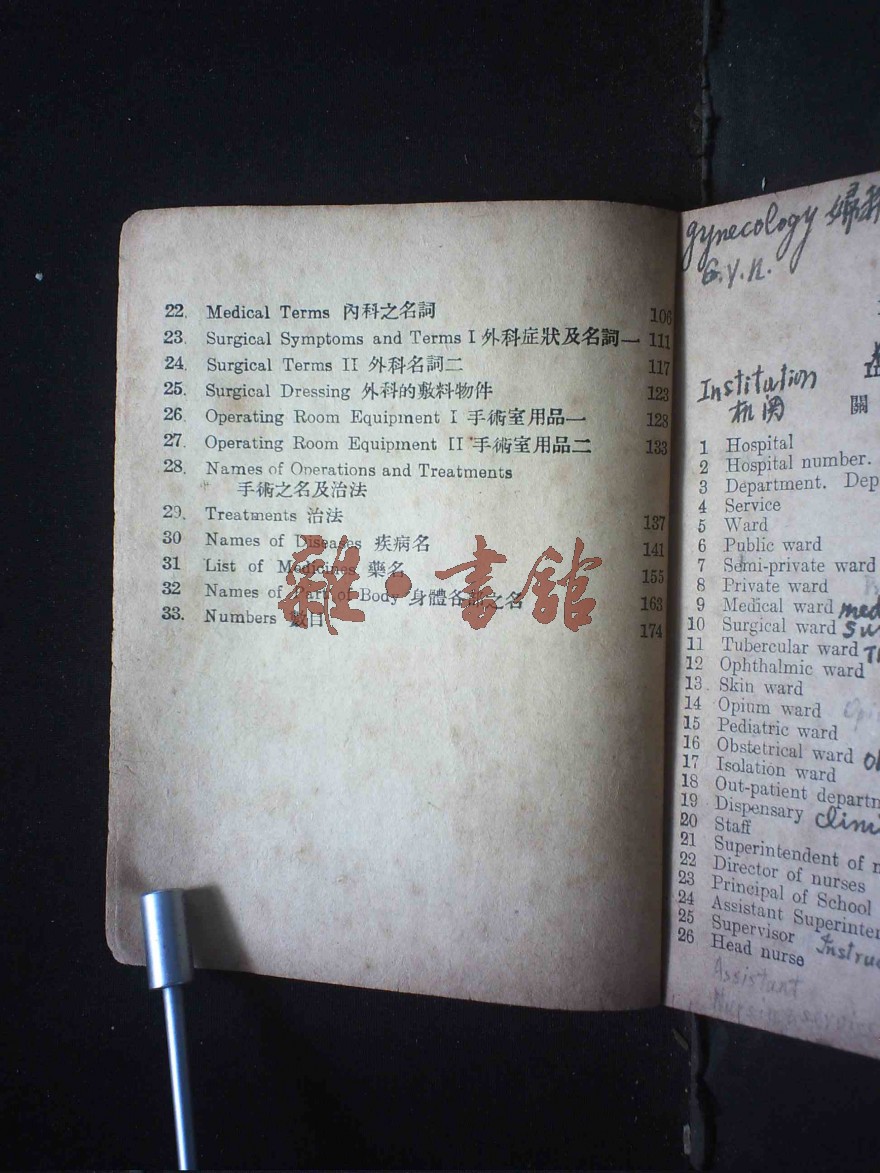 22. Medical Terms 內科之名詞 106
23. Surgical Symptoms and Terms I 外科症狀及名詞一 111
24. Surgical Terms II 外科名詞二 117
25. Surgical Dressing 外科的敷料物件 123
26. Operating Room Equipment I 手術室用品一 128
27. Operating Room Equipment II 手術室用品二 133
28. Names of Operations and Treatments
手術之名及治法
29. Treatments 治法 137
30 Names of Diseases 疾病名 141
31 List of Medicines 藥名 155
32 Names of Part of Body 身體各部之名 163
33. Numbers 數目 174
雜·書館
gynecology 婦科
G.Y.N.
Institution
机关
關
1 Hospital
2 Hospital number.
3 Department. Dep
4 Service
5 Ward
6 Public ward
7 Semi-private ward
8 Private ward
9 Medical ward med
10 Surgical ward Su
11 Tubercular ward
12 Ophthalmic ward
13. Skin ward
14 Opium ward
15 Pediatric ward
16 Obstetrical ward
17 Isolation ward
18 Out-patient departm
19 Dispensary Clini
20 Staff
21 Superintendent of
22 Director of nurses
23 Principal of School
24 Assistant Superinten
25 Supervisor Instruc
26 Head nurse
Assistant